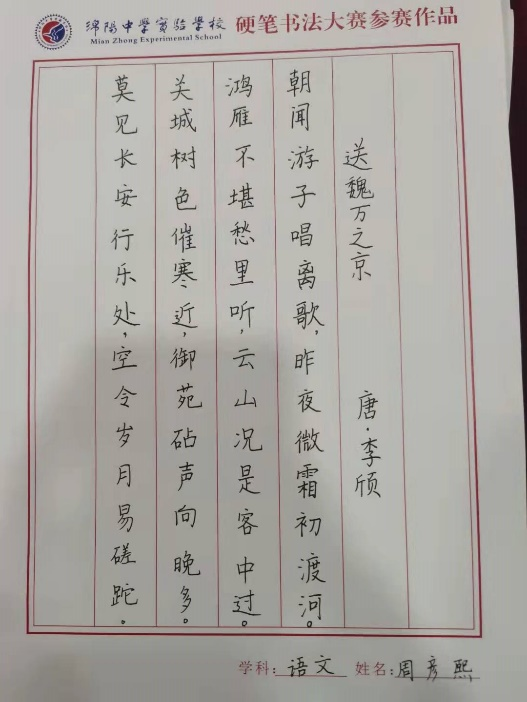 绵阳中学实验学校
Mian Zhong Experimental School
硬笔书法大赛参赛作品
送魏万之京
唐·李颀
朝闻游子唱离歌,昨夜微霜初渡河。
鸿雁不堪愁里听,云山况是客中过。
关城树色催寒近,御苑砧声向晚多。
莫见长安行乐处,空令岁月易磋跎。
学科:语文 姓名:周彦熙